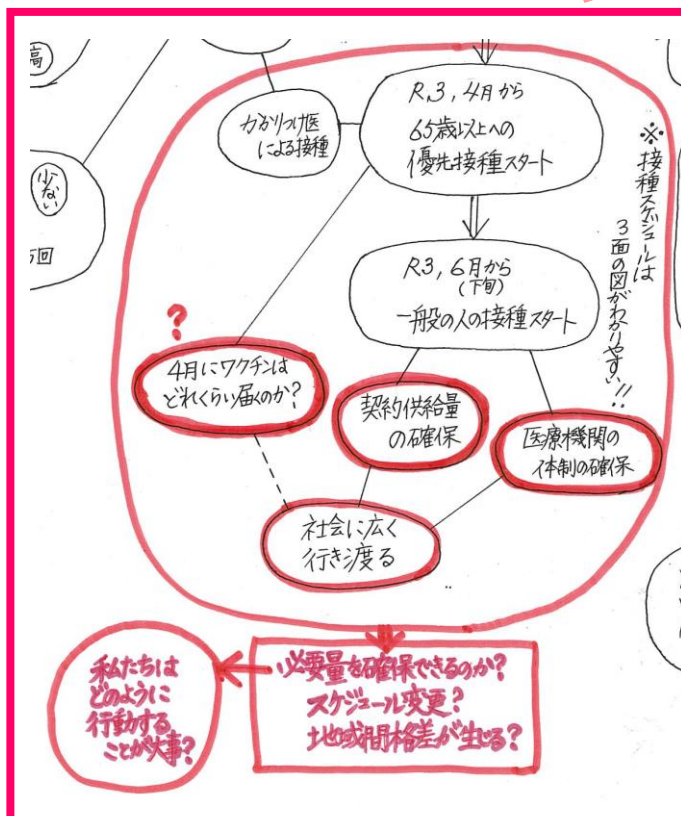 高
少ない
5回
かかりつけ医
による接種
R.3, 4月から
65歳以上への
優先接種スタート
※接種スケジュールは
3面の図がわかりやすい!!
R.3, 6月から
(下旬)
一般の人の接種スタート
?
4月にワクチンは
どれくらい届くのか?
契約供給量
の確保
医療機関の
体制の確保
社会に広く
行き渡る
必要量を確保できるのか?
スケジュール変更?
地域間格差が生じる?
私たちは
どのように
行動する
ことが大事?